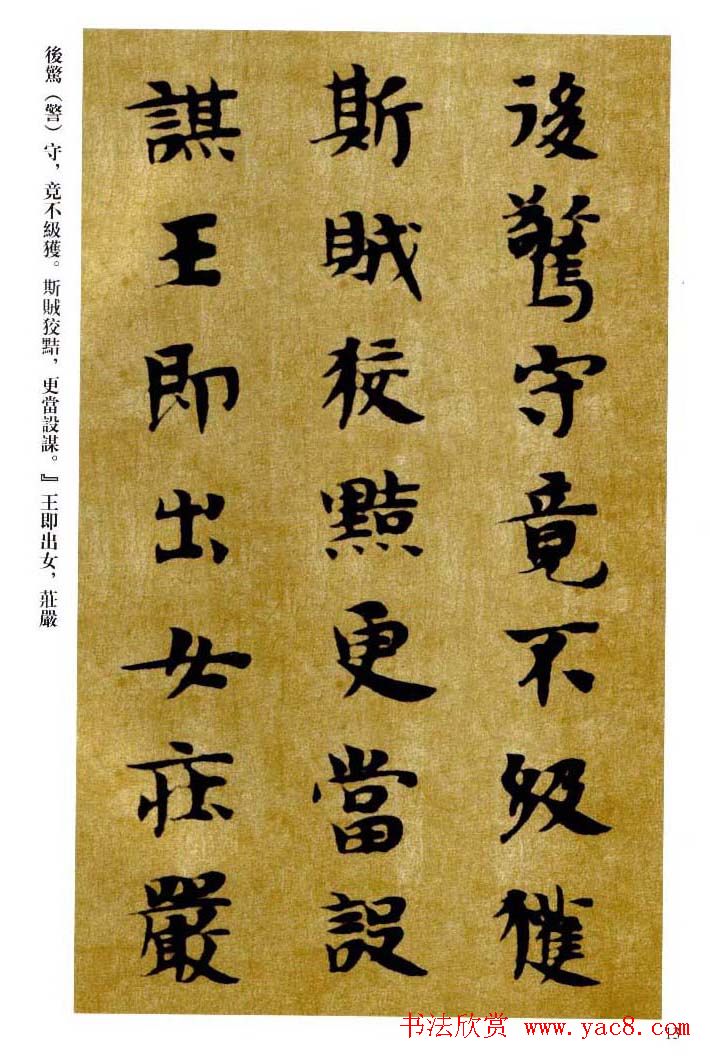 後驚守竟不級獲
斯賊狡黠更當設
謀王即出女莊嚴
後驚（警）守，竟不級獲。斯賊狡黠，更當設謀。』王即出女，莊嚴
书法欣赏 www.yac8.com